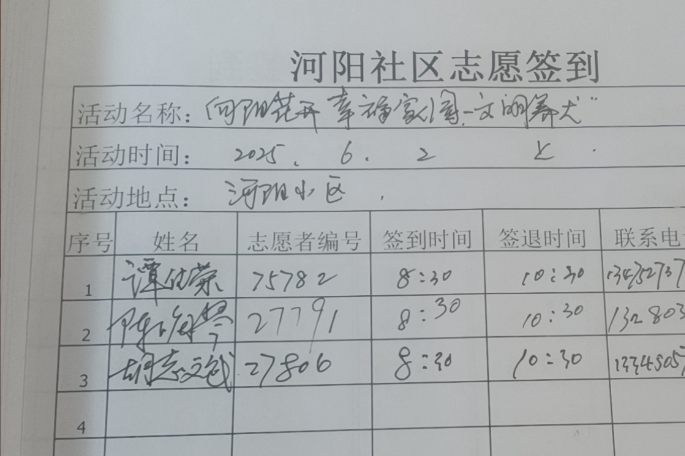 河阳社区志愿签到
活动名称: 向阳花开 幸福家园-文明养犬"
活动时间: 2025. 6. 2 上.
活动地点: 河阳小区.
序号 姓名 志愿者编号 签到时间 签退时间 联系电
1 谭 荣 75782 8:30 10:30
2 陈 琴 27791 8:30 10:30 132803
3 胡志 27806 8:30 10:30
4